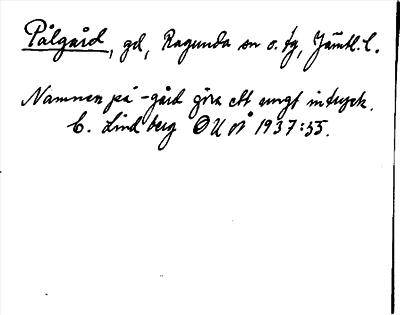 Pålgård, gd, Ragunda sn o. tg, Jämtl. l.
Namnen på -gård göra ett ungt intryck.
C. Lindberg OUÅ 1937:55.